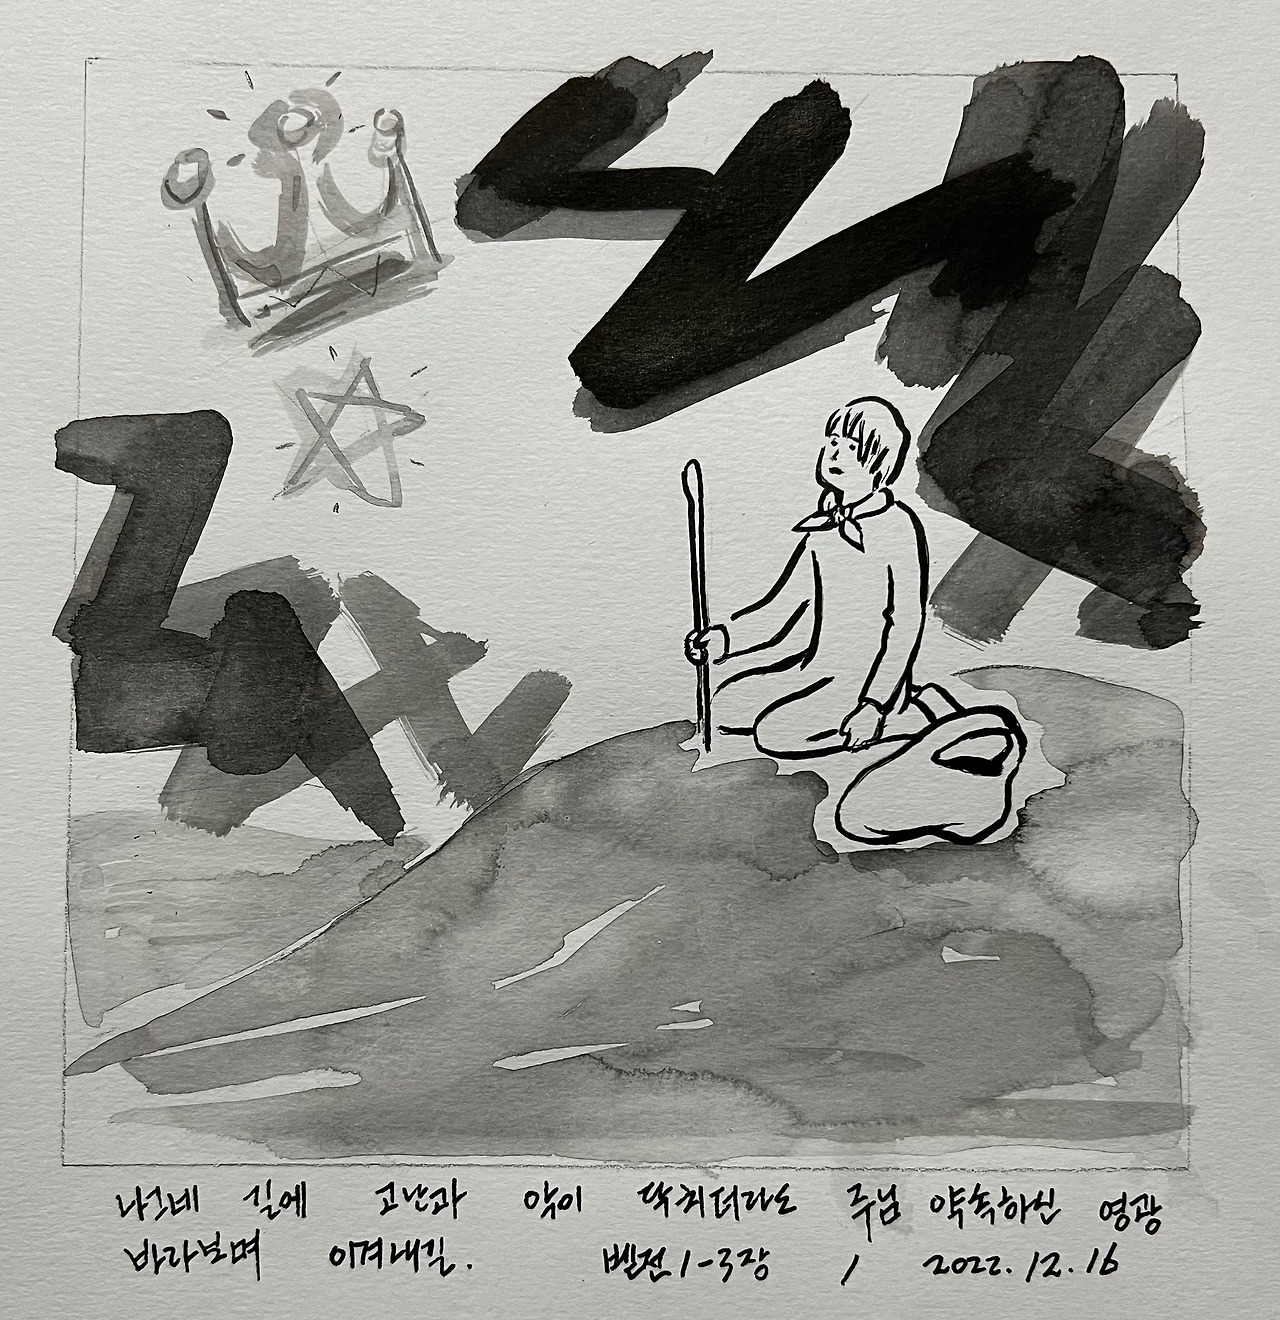 나그네 길에 고난과 악이 닥쳐더라도 주님 약속하신 영광
바라보며 이겨내길. 벧전 1-3장 / 2022. 12. 16